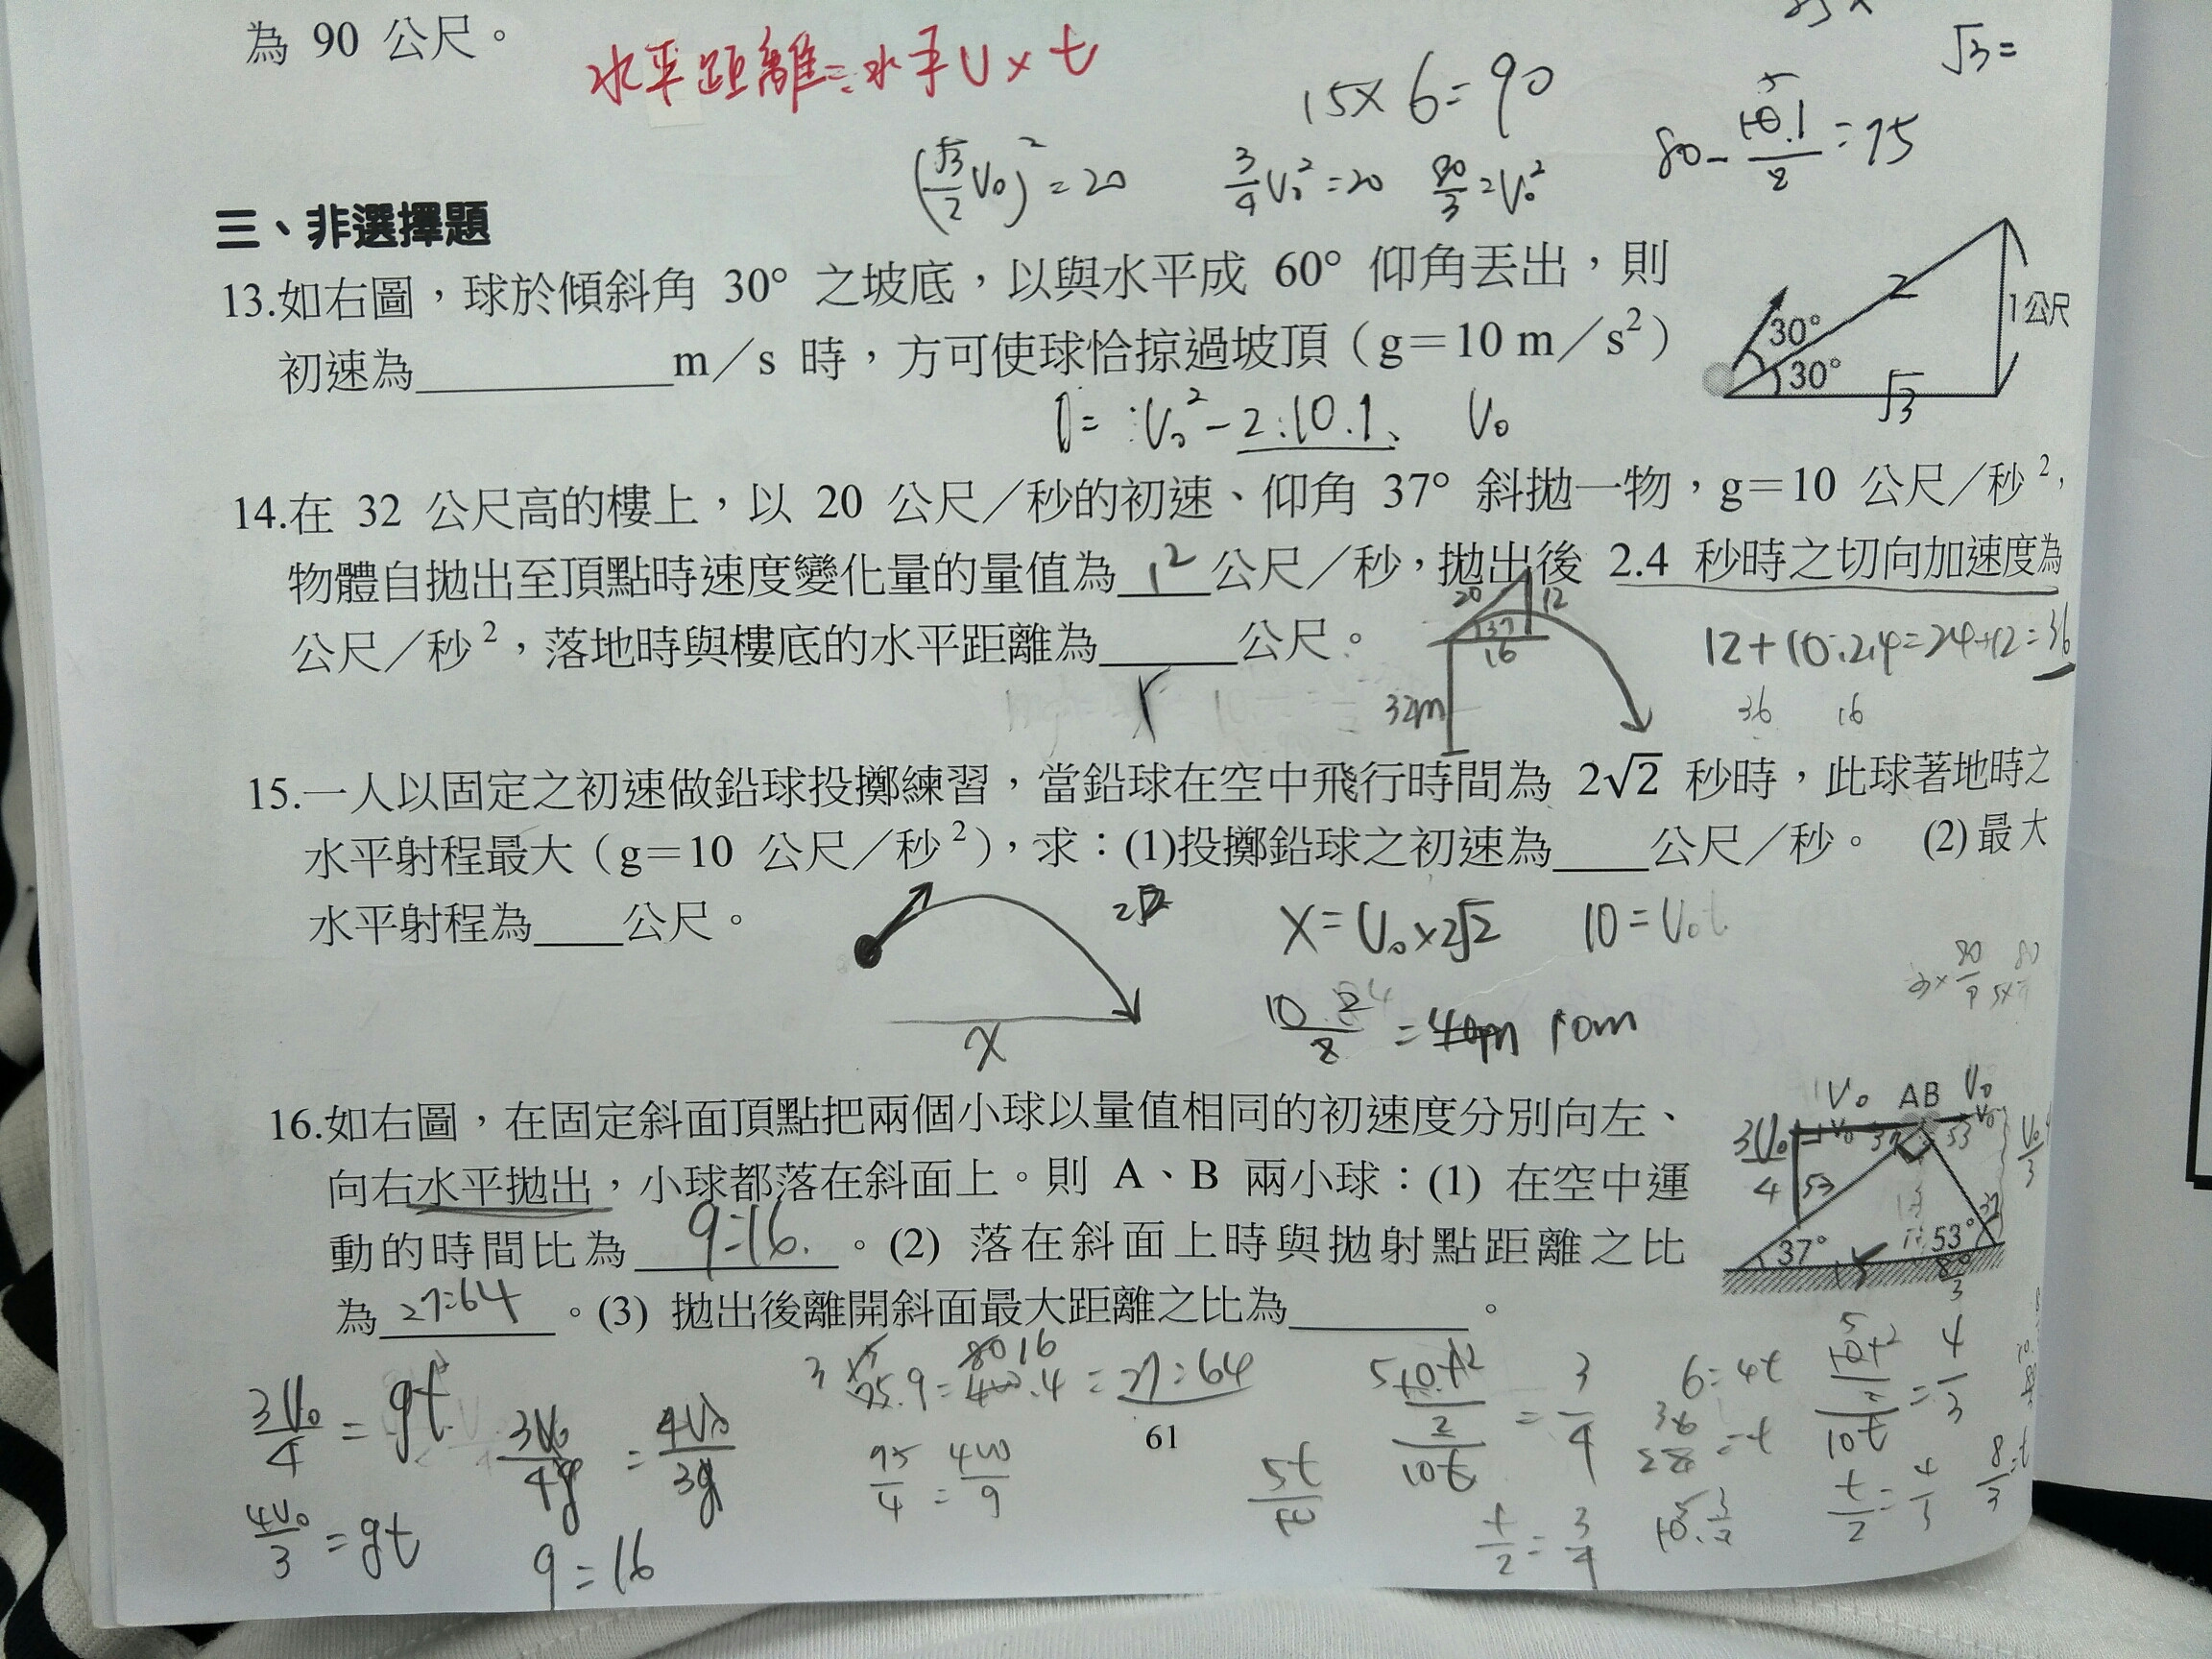 為 90 公尺。
水平距離=水平V×t
15×6=90
√3=
(√3/2 V₀)²=20
3/4 V₀²=20
80/3=V₀²
80-10.1/2=75
三、非選擇題
13.如右圖，球於傾斜角 30° 之坡底，以與水平成 60° 仰角丟出，則
初速為____________m／s 時，方可使球恰掠過坡頂（g＝10 m／s²）
30°
30°
2
1公尺
√3
0= V₀²-2.10.1
V₀
14.在 32 公尺高的樓上，以 20 公尺／秒的初速、仰角 37° 斜拋一物，g＝10 公尺／秒²，
物體自拋出至頂點時速度變化量的量值為 12 公尺／秒，拋出後 2.4 秒時之切向加速度為
公尺／秒²，落地時與樓底的水平距離為______公尺。
20
12
37
16
32m
12+10.2.4=24+12=36
36 16
15.一人以固定之初速做鉛球投擲練習，當鉛球在空中飛行時間為 2√2 秒時，此球著地時之
水平射程最大（g＝10 公尺／秒²），求：(1)投擲鉛球之初速為____公尺／秒。 (2)最大
水平射程為____公尺。
x
X=V₀×2√2
10=V₀t
=40m 10m
16.如右圖，在固定斜面頂點把兩個小球以量值相同的初速度分別向左、
向右水平拋出，小球都落在斜面上。則 A、B 兩小球：(1) 在空中運
動的時間比為 9:16. 。(2) 落在斜面上時與拋射點距離之比
為 27:64 。(3) 拋出後離開斜面最大距離之比為________。
V₀ AB V₀
3V₀/4
53
53
37° 53°
V₀/3
3V₀/4=gt
3V₀/4g=4V₀/3g
4V₀/3=gt
9=16
=27:64
75/4=400/9
61
10t²/2/10t=3/4
t/2=3/4
6=4t
10t²/2/10t=4/3
t/2=4/3
8/3=t